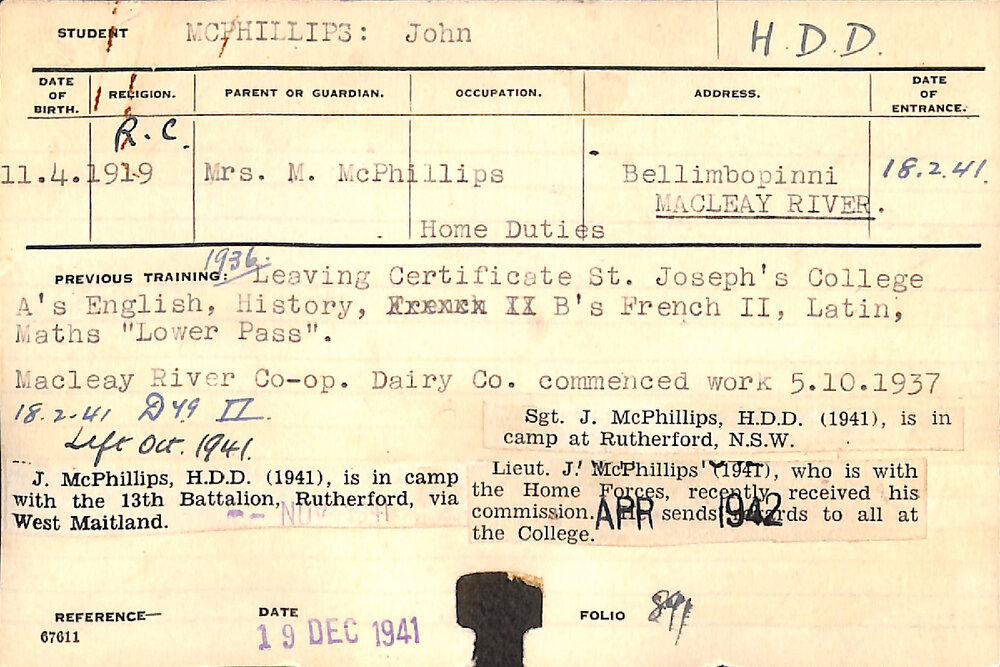 STUDENT MCPHILLIPS: John H.D.D.
DATE OF BIRTH. RELIGION. PARENT OR GUARDIAN. OCCUPATION. ADDRESS. DATE OF ENTRANCE.
R.C.
11.4.1919 Mrs. M. McPhillips Bellimbopinni 18.2.41.
MACLEAY RIVER.
Home Duties
1936.
PREVIOUS TRAINING: Leaving Certificate St. Joseph's College
A's English, History, French II B's French II, Latin,
Maths "Lower Pass".
Macleay River Co-op. Dairy Co. commenced work 5.10.1937
18.2.41 D49 II.
Left Oct. 1941.
J. McPhillips, H.D.D. (1941), is in camp
with the 13th Battalion, Rutherford, via
West Maitland.
NOV
Sgt. J. McPhillips, H.D.D. (1941), is in
camp at Rutherford, N.S.W.
Lieut. J. McPhillips (1941), who is with
the Home Forces, recently received his
commission. He sends regards to all at
the College.
APR 1942
REFERENCE— DATE FOLIO
67611 19 DEC 1941